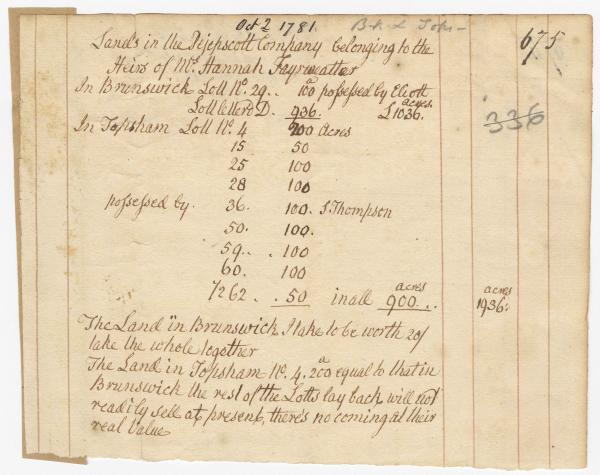 Oct 2 1781. B.k & Tops— 675
Lands in the Pejepscott Company belonging to the
Heirs of Mrs. Hannah Fayrweather
In Brunswick Lott No. 29.. 100 a possessed by Eliott
Lott letterd D. 936. £1036. acres. 336
In Topsham Lott No. 4 200 Acres
15 50
25 100
28 100
possessed by. 36. 100. S. Thompson
50. 100.
59.. . 100
60. 100
7262 . . 50 in all 900 acres.. acres 1936.
The Land in Brunswick I take to be worth 20/
take the whole together
The Land in Topsham No. 4. 200 a equal to that in
Brunswick the rest of the Lotts lay back will not
readily sell at present, there's no coming at their
real Value